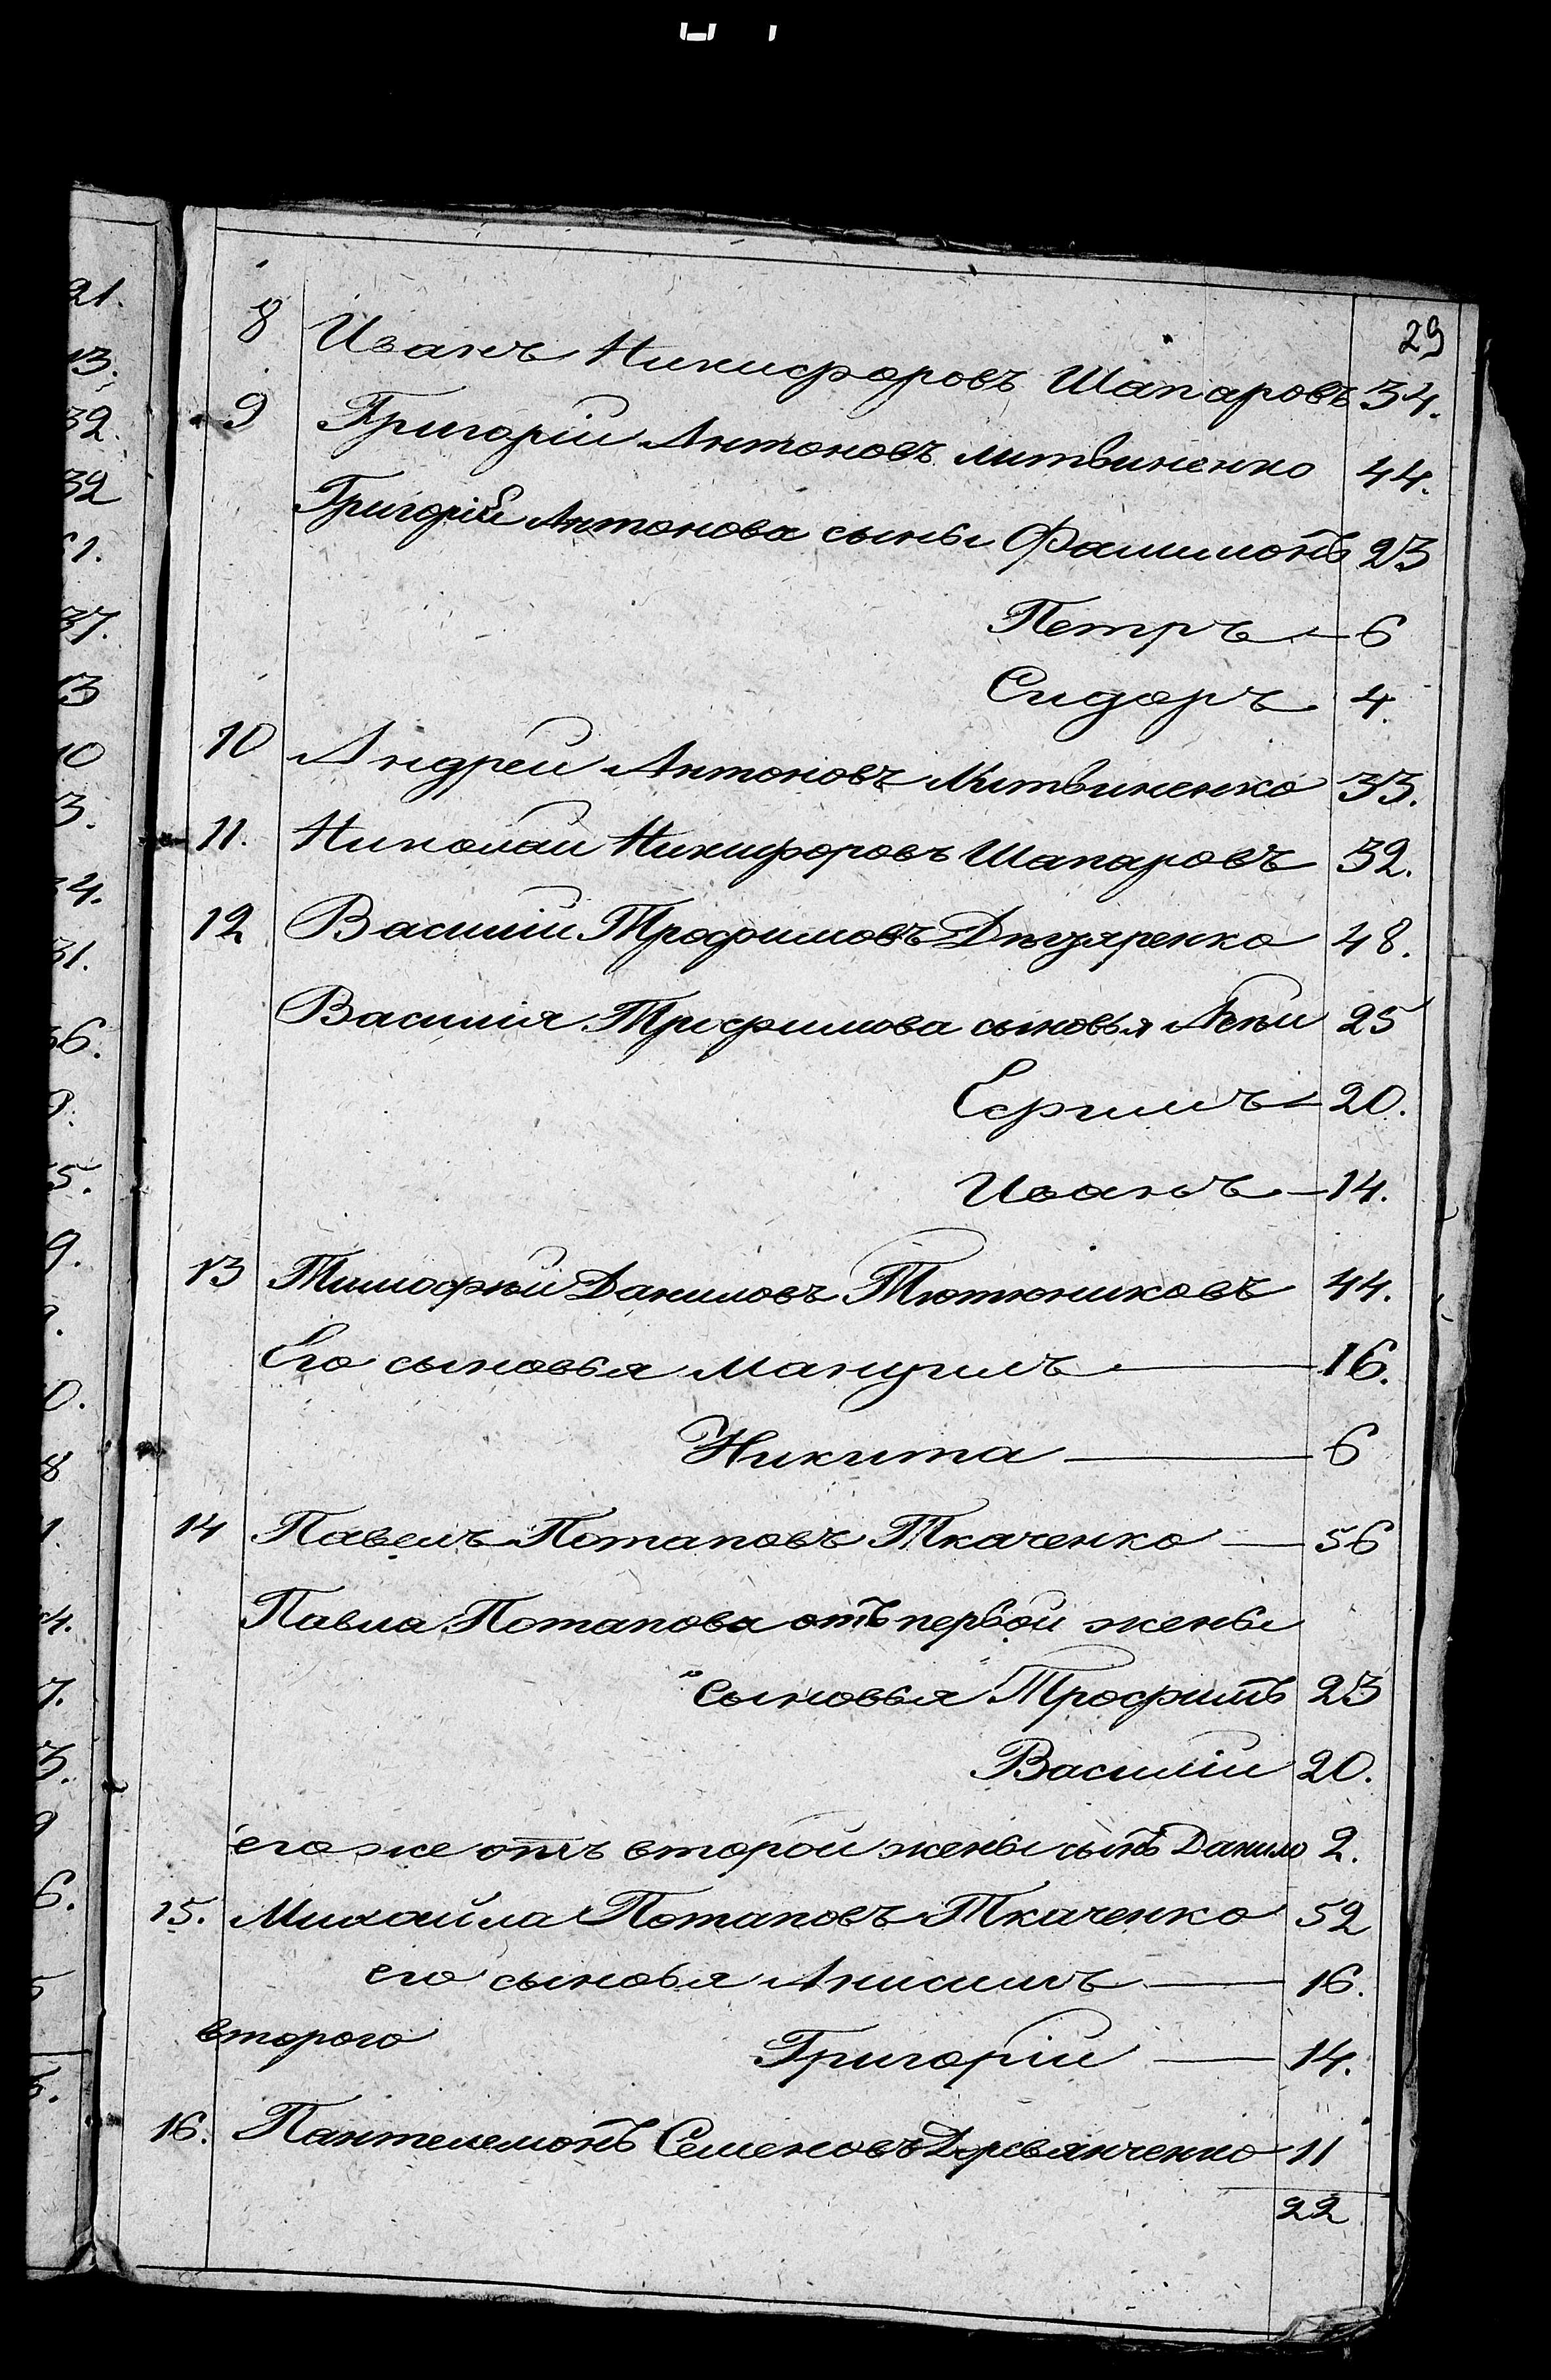 29
8 Иванъ Никифоровъ Шапаровъ 34.
9 Григорій Антоновъ Литвиненко 44.
Григорій Антонова сыны Филимонъ 23
Петръ — 6
Сидоръ 4.
10 Андрей Антоновъ Литвиненко 33.
11. Николай Никифоровъ Шапаровъ 32.
12 Василій Трофимовъ 48.
Василія Трофимова сыновья 25
Ефимъ — 20.
Иванъ — 14.
13 Тимофѣй Даниловъ Тютюниковъ 44.
Его сыновья Мануилъ — 16.
Никита — 6
14 Павелъ Потаповъ Ткаченко — 56
Павла Потапова отъ первой жены
сыновья Трофимъ 23
Василій 20.
его же отъ второй жены сынъ Данило 2.
15. Михайла Потаповъ Ткаченко 52
его сыновья Анисимъ — 16.
второго Григорій — 14.
16. Пантелемонъ Семеновъ Деревянченко 11
22